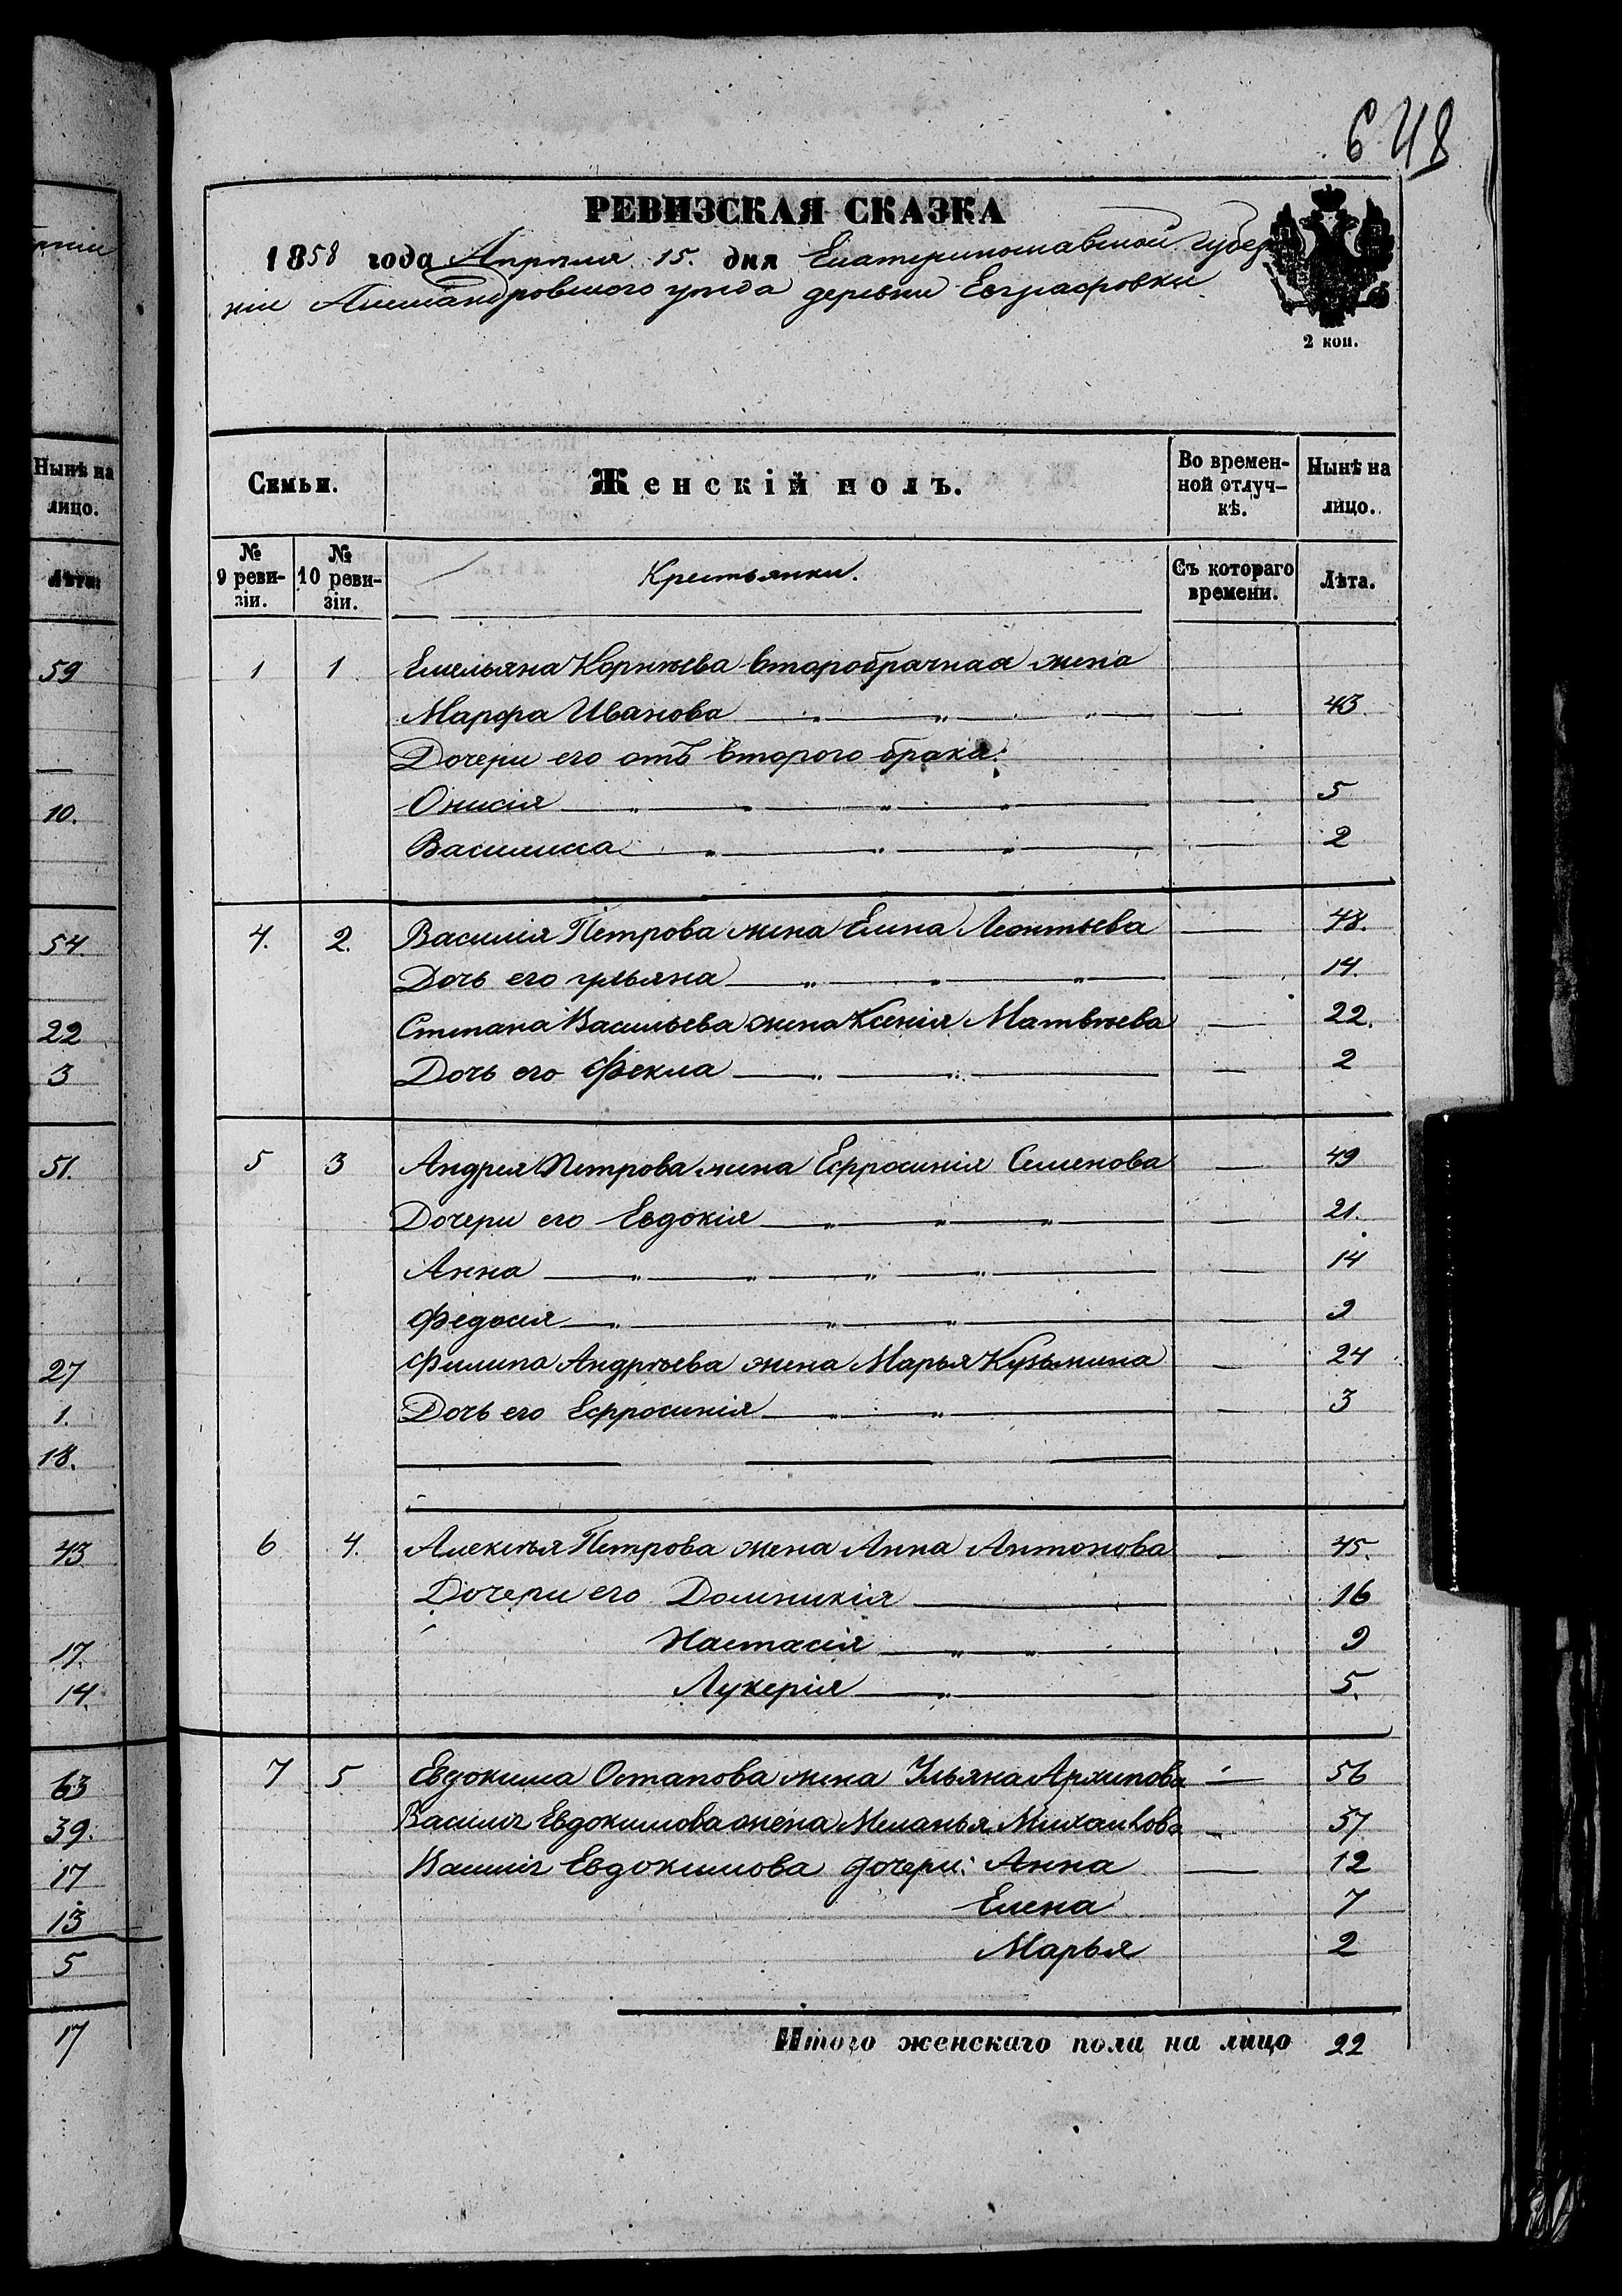 648
РЕВИЗСКАЯ СКАЗКА
1858 года Апрѣля 15. дня Екатеринославской губер
ніи Александровского уѣзда деревни Евграфовки
2 коп.
Семьи.
Женскій полъ.
Во времен-
ной отлуч-
кѣ.
Нынѣ на
лицо.
№
9 реви-
зіи.
№
10 реви-
зіи.
Крестьянки.
Съ котораго
времени.
Лѣта.
1 1 Емельяна Корнѣева второбрачная жена
Марфа Иванова 43.
Дочери его отъ второго брака:
Онисія 5
Василиса 2
4. 2. Василія Петрова жена Елена Леонтьева 48.
Дочь его ульяна 14.
Степана Васильева жена Ксенія Матвѣева 22.
Дочь его Фекла 2
5 3 Андрея Петрова жена Ефросинія Семенова 49
Дочери его Евдокія 21.
Анна 14
Федосія 9
Филипа Андрѣева жена Марья Кузьмина 24
Дочь его Ефросинія 3
6 4. Алексѣя Петрова жена Анна Антонова 45.
Дочери его Домникія 16
Настасія 9
Лукерія 5.
7 5 Евдокима Остапова жена Ульяна Архипова 56
Василія Евдокимова жена Меланья Михайлова 37
Василія Евдокимова дочери: Анна 12
Елена 7
Марья 2
Итого женскаго пола на лицо 22
Нынѣ на
лицо.
Лѣта.
59
10.
54.
22
3
51.
27
1.
18.
43
17.
14.
63
39.
17
13
5
17